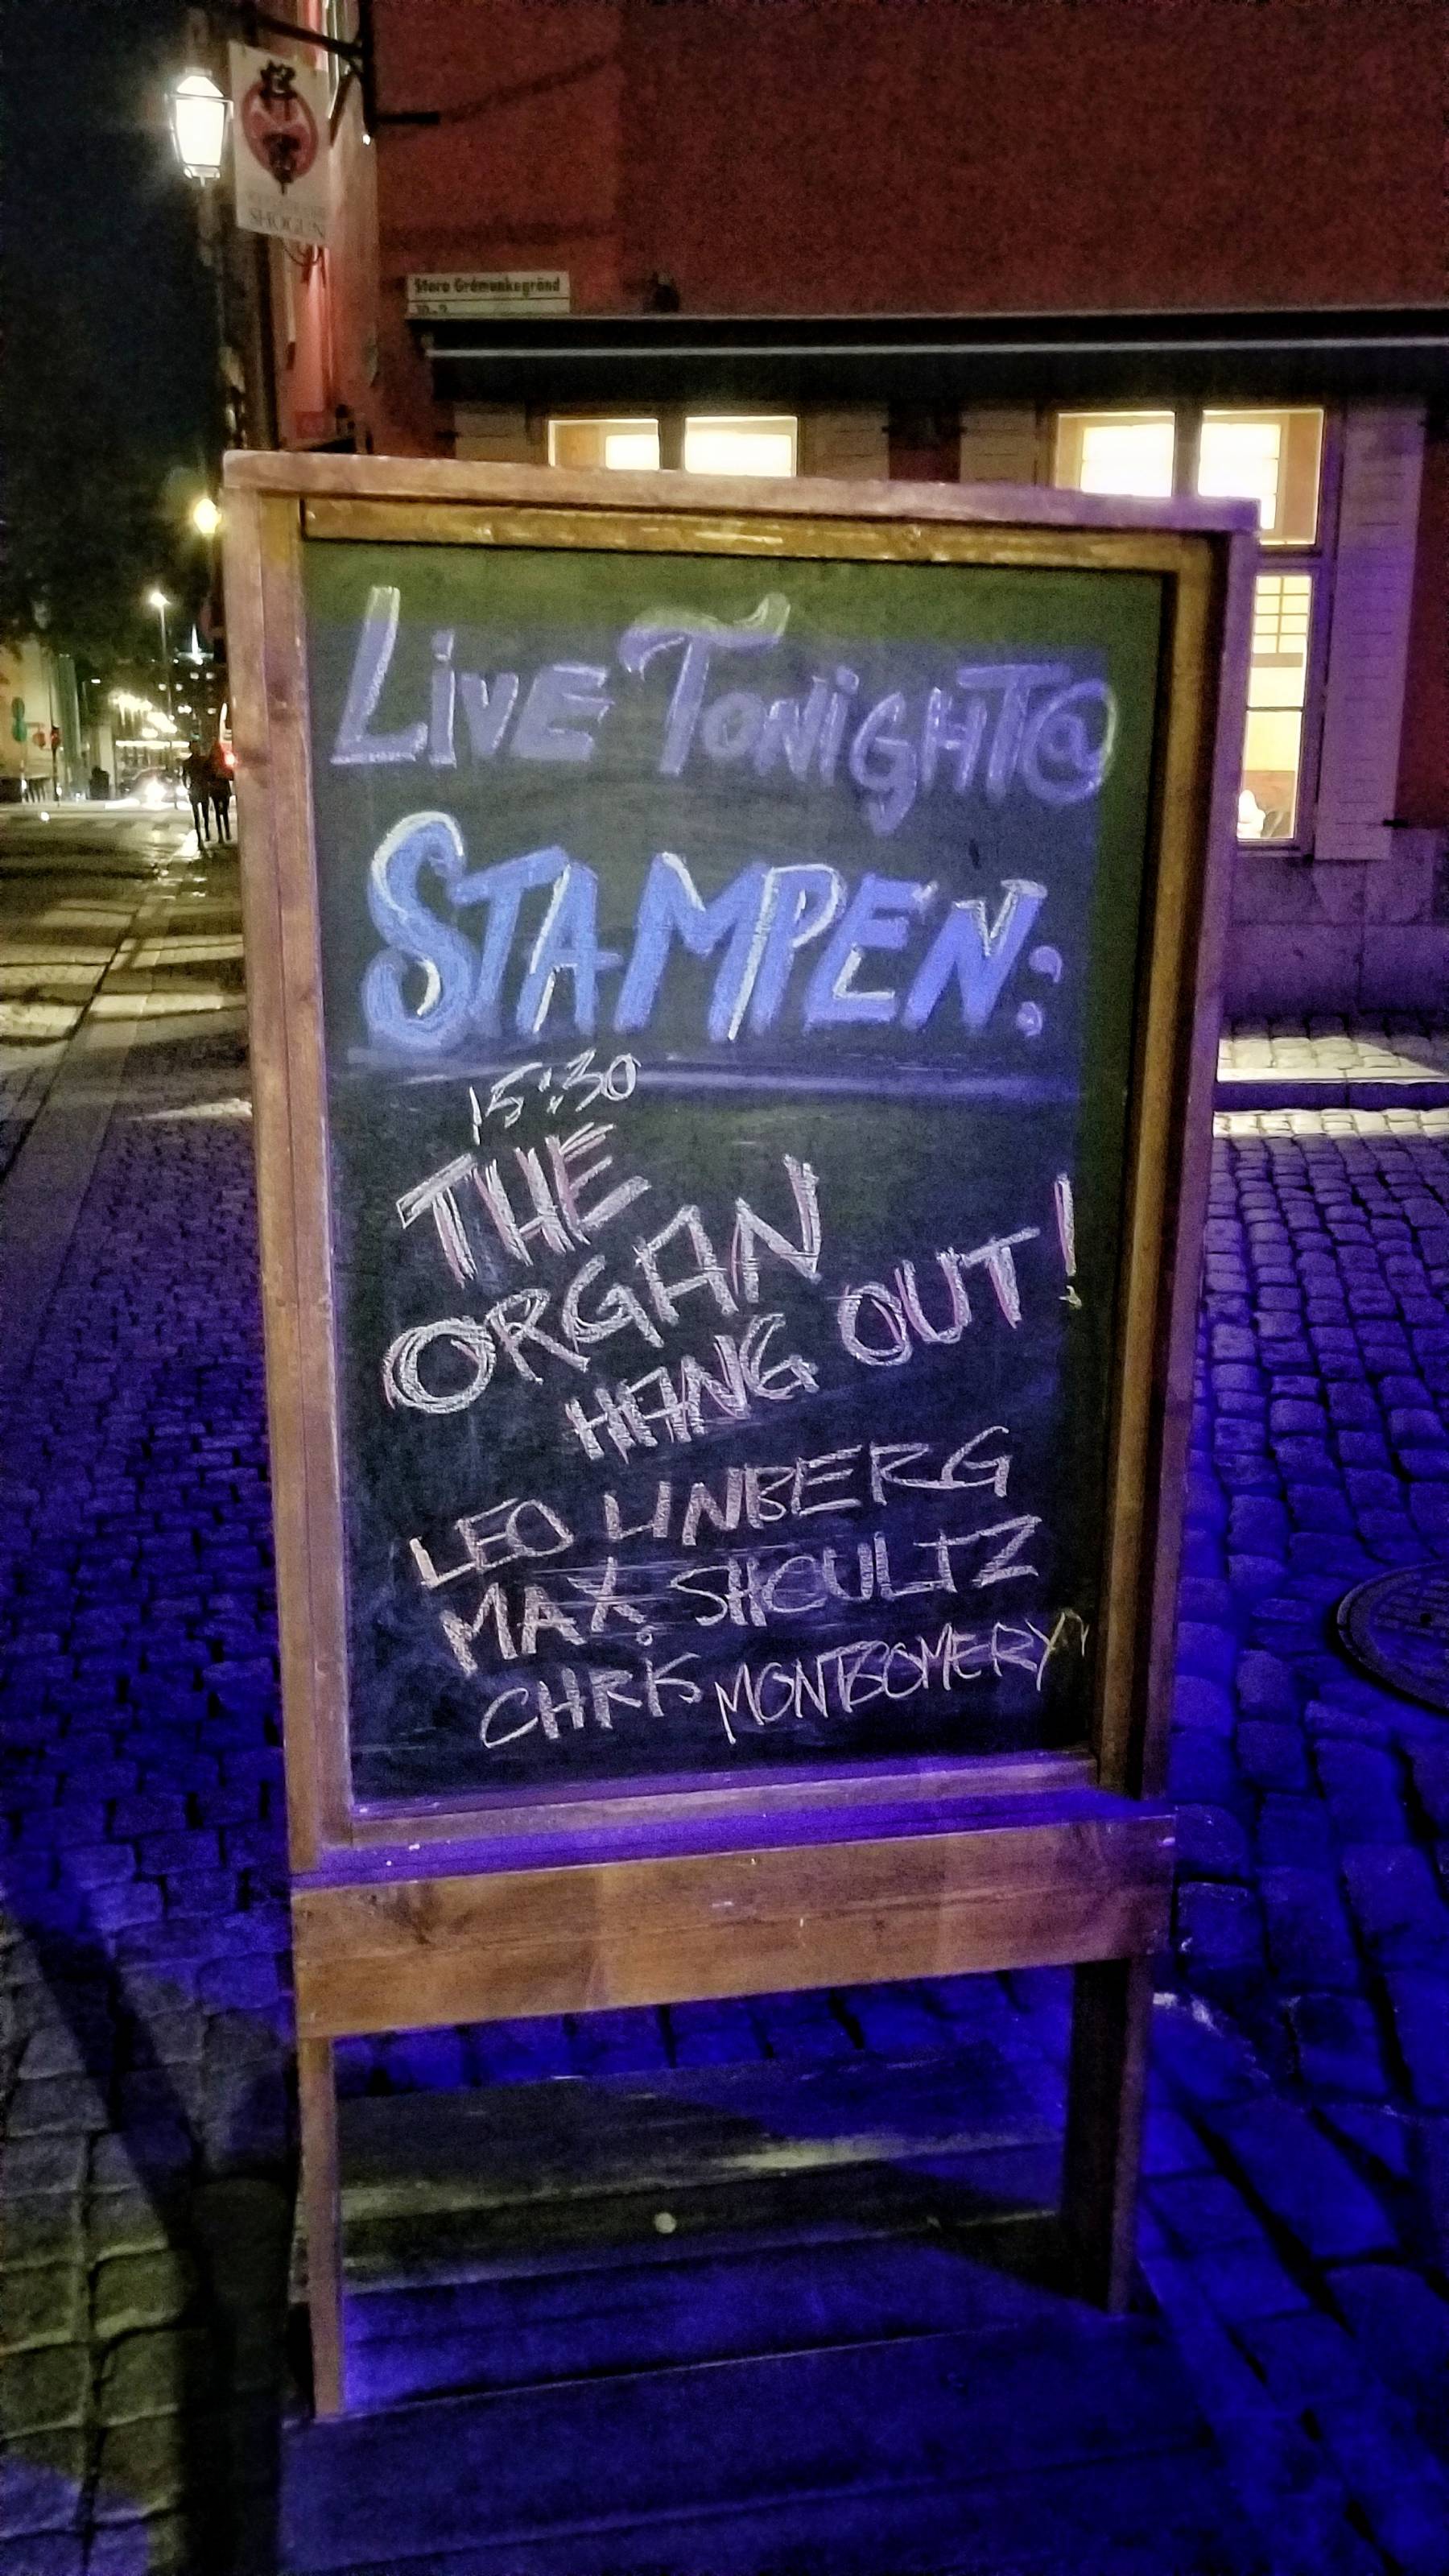 SHOGUN
Stora Gråmunkegränd
LIVE TONIGHT@
STAMPEN:
15:30
THE
ORGAN
HANG OUT!
LEO LINBERG
MAX SHOULTZ
CHRIS MONTGOMERY